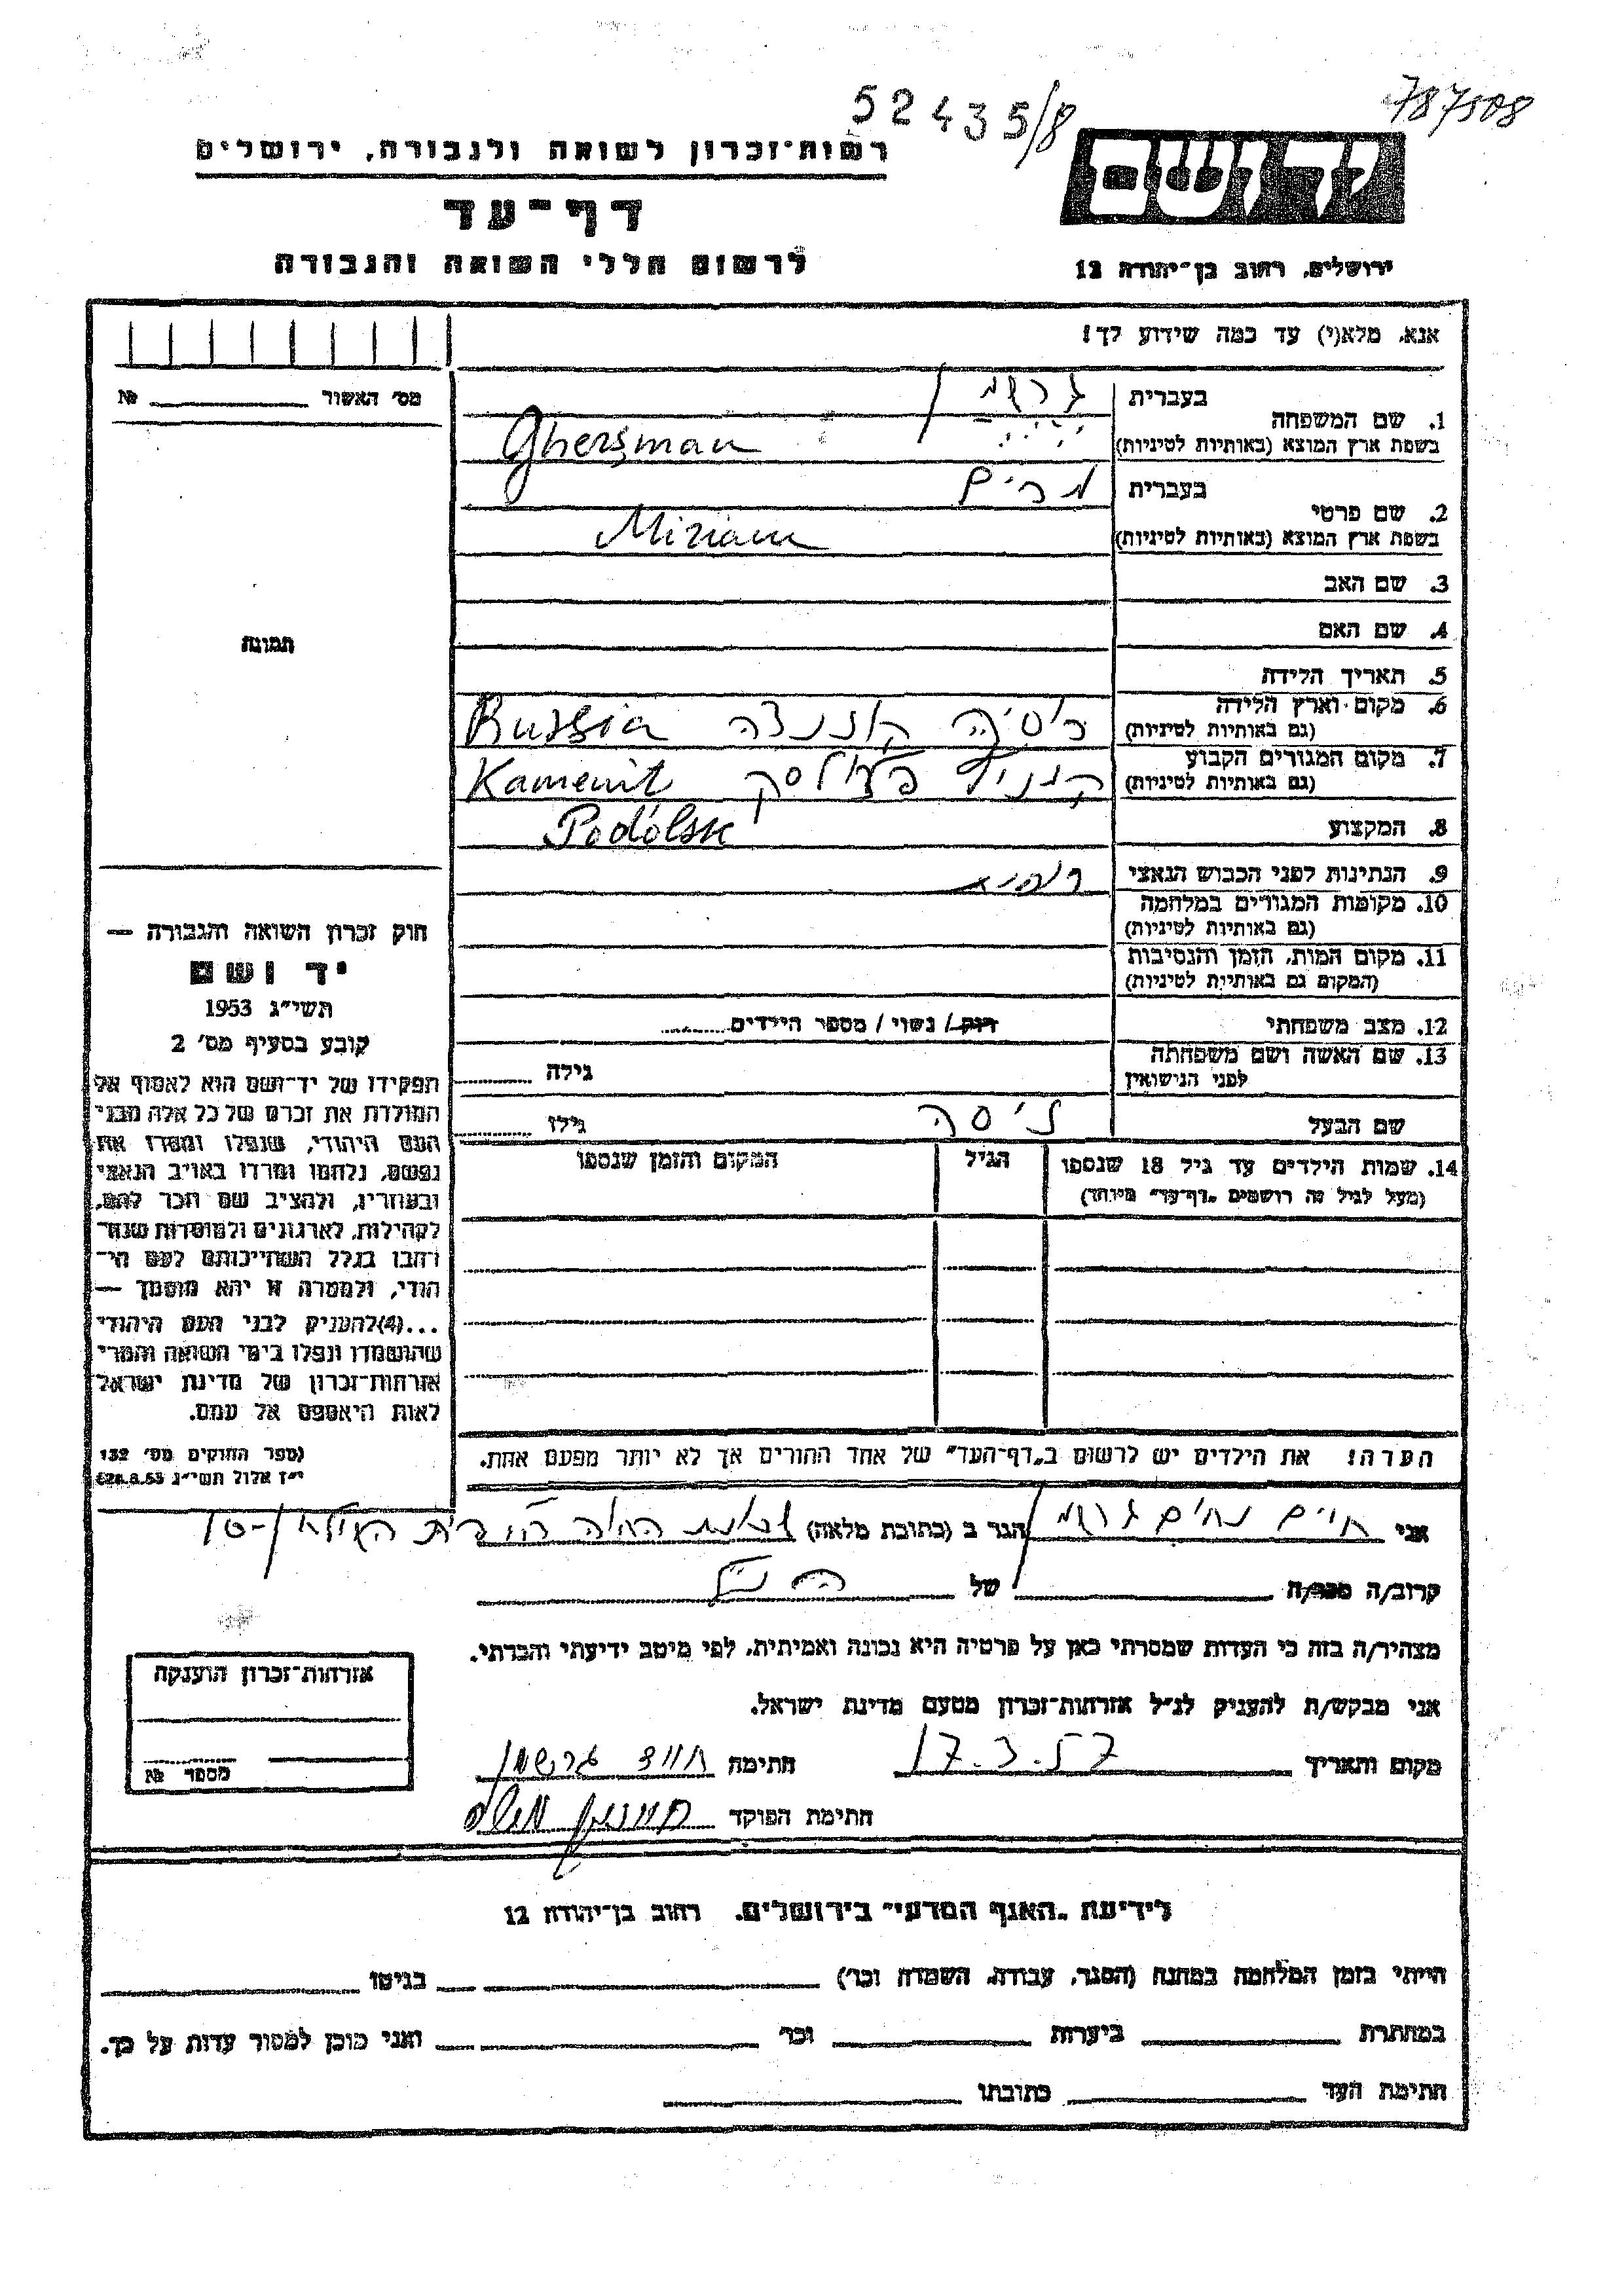 52435/8
787508
רשות־זכרון לשואה ולגבורה, ירושלים
יד ושם
דף־עד
לרשום חללי השואה והגבורה
ירושלים, רחוב בן־יהודה 12
אנא, מלא(י) עד כמה שידוע לך!
מס׳ האשור № 
1. שם המשפחה
בעברית גרשמן
בשפת ארץ המוצא (באותיות לטיניות) Gherşman
2. שם פרטי
בעברית מרים
בשפת ארץ המוצא (באותיות לטיניות) Miriam
3. שם האב
4. שם האם
תמונה
5. תאריך הלידה
6. מקום וארץ הלידה
(גם באותיות לטיניות) רוסיה Russia
7. מקום המגורים הקבוע
(גם באותיות לטיניות) Kamenit
Podolsk
8. המקצוע
9. הנתינות לפני הכבוש הנאצי
10. מקומות המגורים במלחמה
(גם באותיות לטיניות)
11. מקום המות, הזמן והנסיבות
(המקום גם באותיות לטיניות)
12. מצב משפחתי רוק / נשוי / מספר הילדים
13. שם האשה ושם משפחתה
לפני הנישואין גילה
שם הבעל גילו
14. שמות הילדים עד גיל 18 שנספו
(מעל לגיל זה רושמים „דף־עד״ מיוחד)
הגיל
המקום והזמן שנספו
חוק זכרון השואה והגבורה —
יד ושם
תשי״ג 1953
קובע בסעיף מס׳ 2
תפקידו של יד־ושם הוא לאסוף אל
המולדת את זכרם של כל אלה מבני
העם היהודי, שנפלו ומסרו את
נפשם, נלחמו ומרדו באויב הנאצי
ובעוזריו, ולהציב שם וזכר להם,
לקהילות, לארגונים ולמוסדות שנח־
רבו בגלל השתייכותם לעם הי־
הודי, ולמטרה זו יהא מוסמך —
...(4)להעניק לבני העם היהודי
שהושמדו ונפלו בימי השואה והמרי
אזרחות־זכרון של מדינת ישראל
לאות היאספם אל עמם.
(ספר החוקים מס׳ 132
י״ז אלול תשי״ג 28.8.53)
הערה! את הילדים יש לרשום ב„דף־העד״ של אחד ההורים אך לא יותר מפעם אחת.
אני חיים גרשמן הגר ב (כתובת מלאה)
קרוב/ה מכר/ה של
מצהיר/ה בזה כי העדות שמסרתי כאן על פרטיה היא נכונה ואמיתית, לפי מיטב ידיעתי והכרתי.
אני מבקש/ת להעניק לנ״ל אזרחות־זכרון מטעם מדינת ישראל.
מקום ותאריך 17.3.57 חתימה גרשמן
חתימת הפוקד
אזרחות־זכרון הוענקה
מספר №
לידיעת „האגף המדעי״ בירושלים, רחוב בן־יהודה 12
הייתי בזמן המלחמה במחנה (הסגר, עבודה, השמדה וכו׳) בגיטו
במחתרת ביערות וכו׳ ואני מוכן למסור עדות על כך.
חתימת העד כתובתו